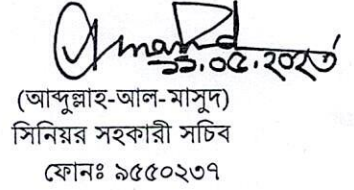 ১১.০৫.২০২৩
(আব্দুল্লাহ-আল-মাসুদ)
সিনিয়র সহকারী সচিব
ফোনঃ ৯৫৫০২৩৭